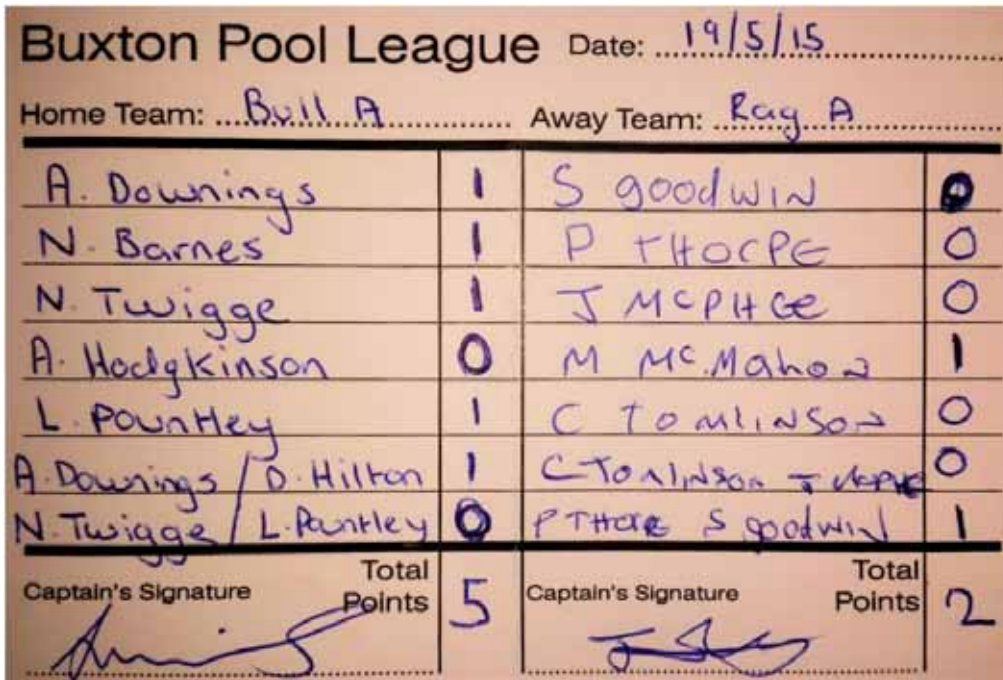 Buxton Pool League Date: 19/5/15
Home Team: Bull A Away Team: Rag A
A. Downings 1 S goodwin 0
N. Barnes 1 P THORPE 0
N. Twigge 1 J MCPHEE 0
A. Hodgkinson 0 M Mc.Mahon 1
L. Pountley 1 C TOMLINSON 0
A. Downings / D. Hilton 1 C Tomlinson J 0
N. Twigge / L. Pountley 0 P S goodwin 1
Captain's Signature Total Points 5 Captain's Signature Total Points 2